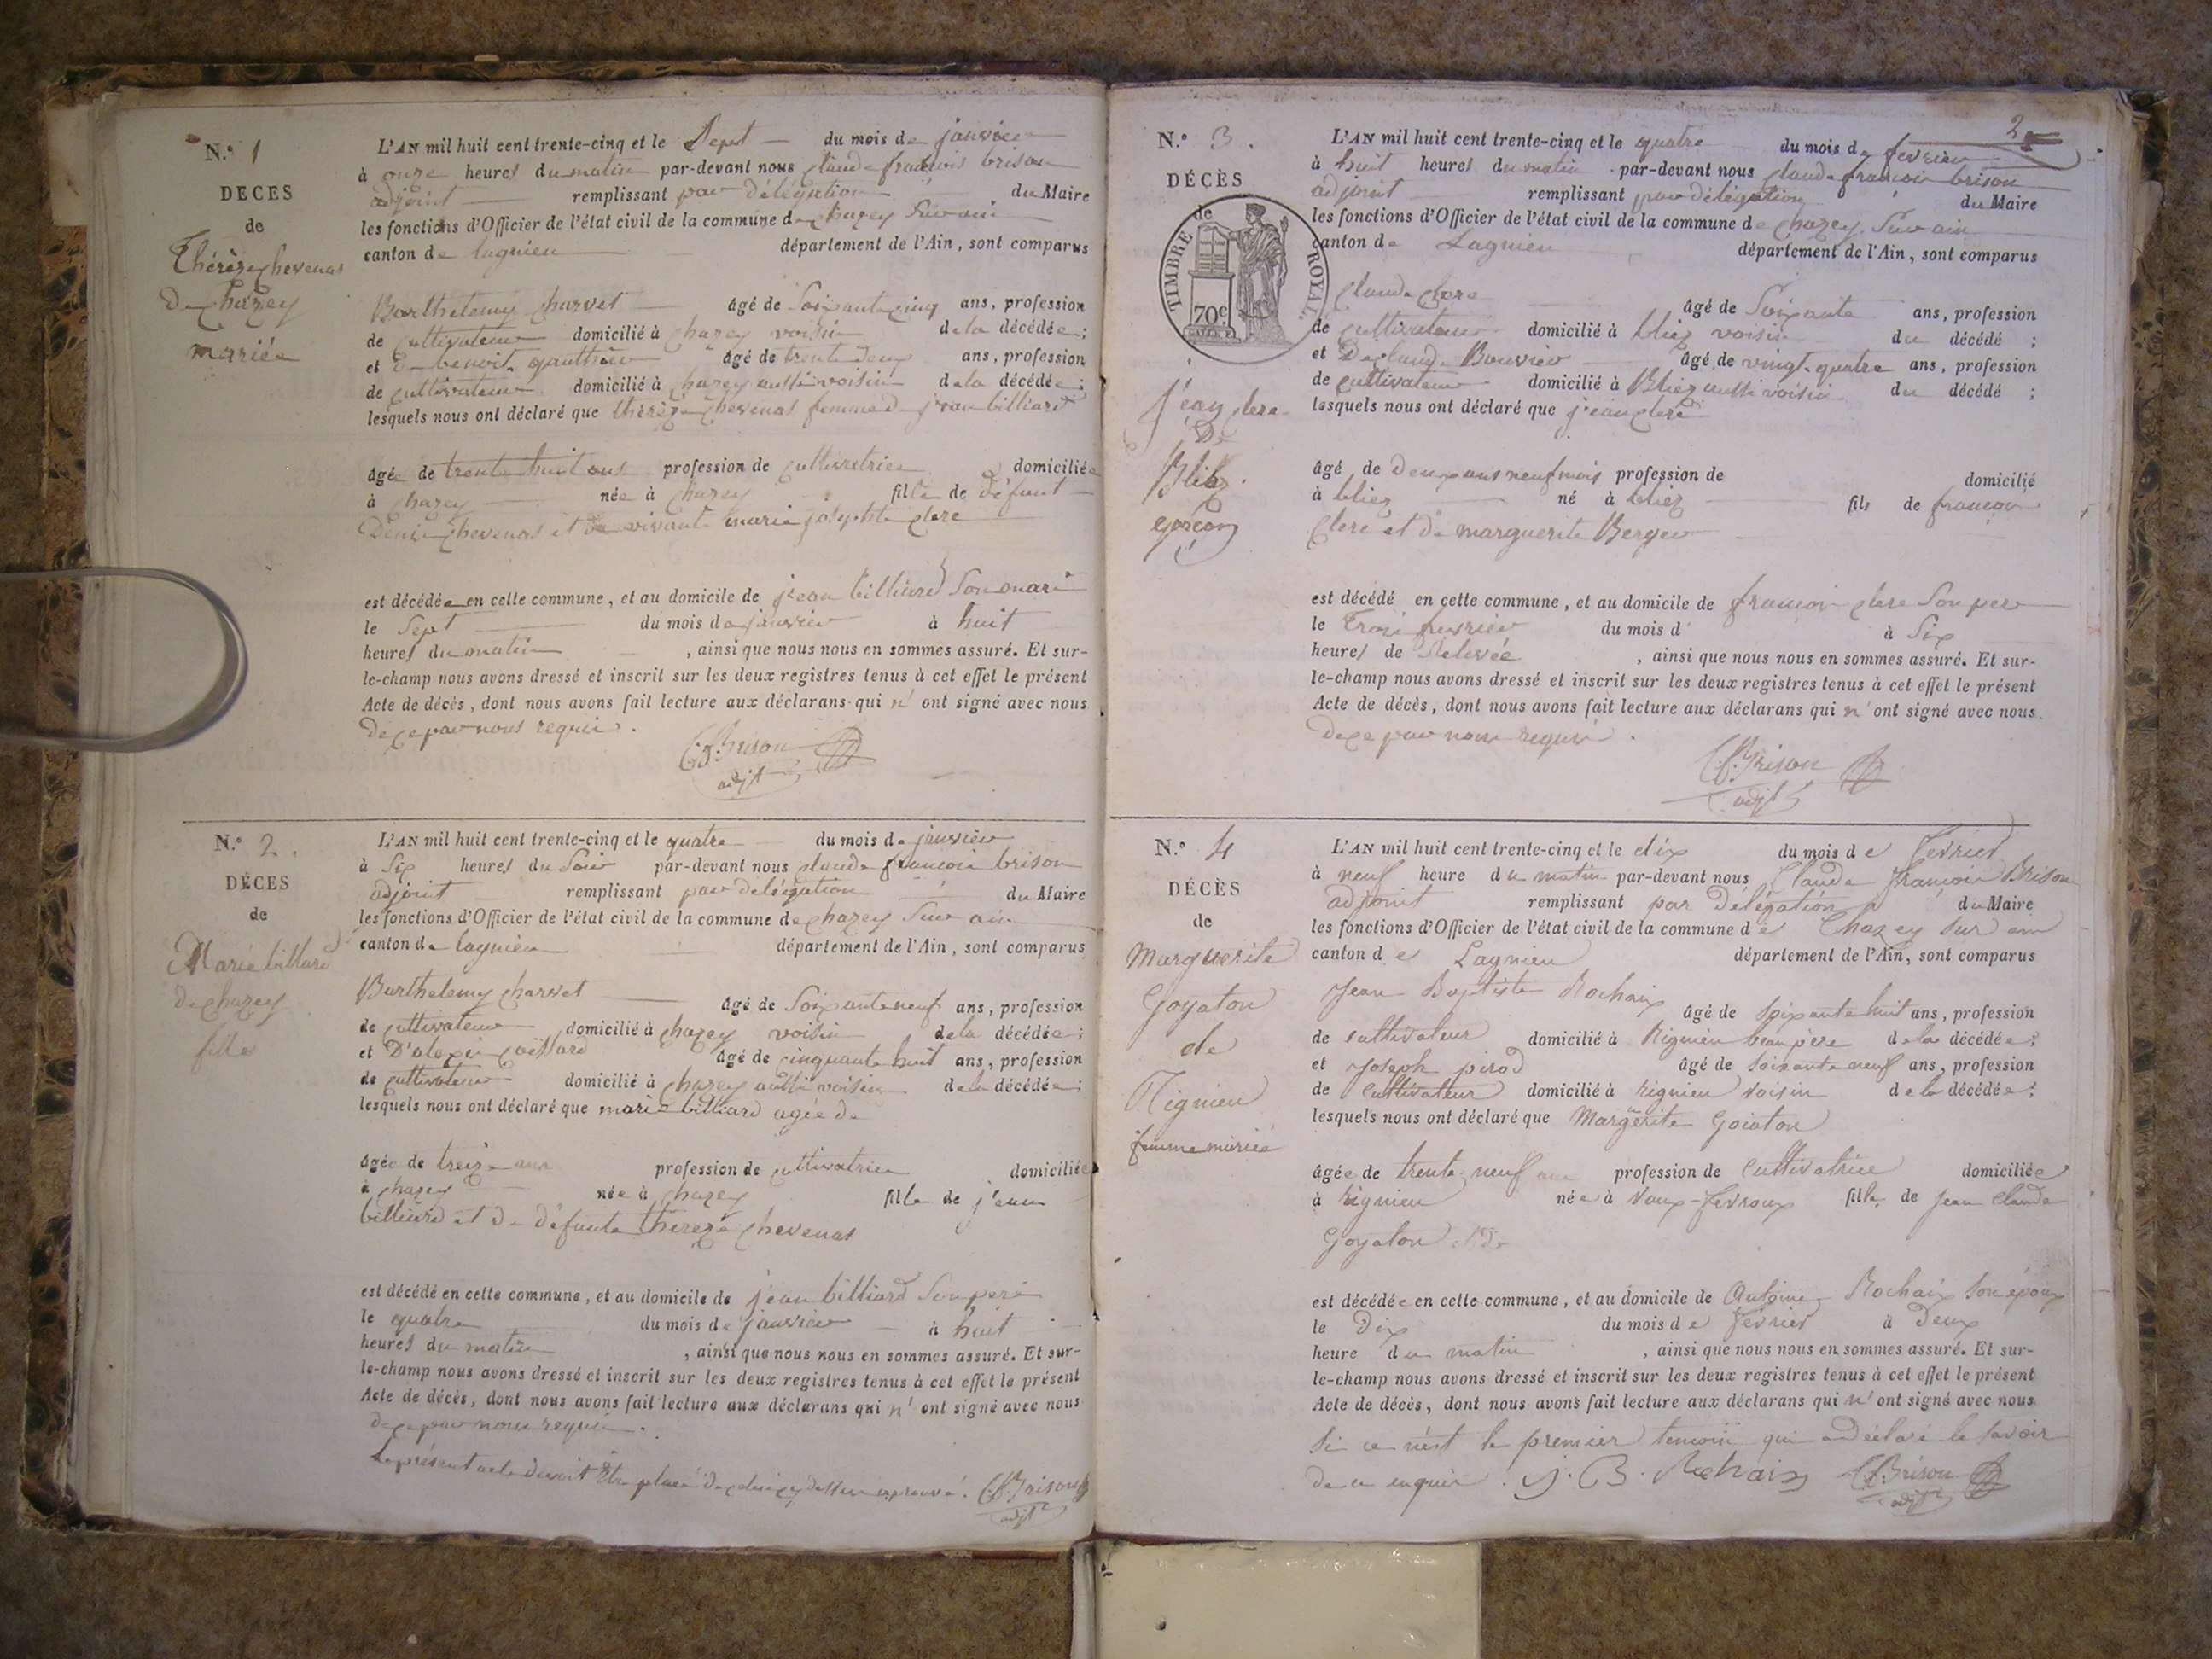 N.° 1
DÉCÈS
de
Thérèze chevenas
De chazey
mariée
L'AN mil huit cent trente-cinq et le Sept du mois de janvier
à onze heures du matin par-devant nous claude francois brison
adjoint remplissant par délégation du Maire
les fonctions d'Officier de l'état civil de la commune de chazey Sur ain
canton de lagnieu département de l'Ain, sont comparus
Barthelemy charvet âgé de Soixante cinq ans, profession
de cultivateur domicilié à chazey voisin de la décédée;
et benoit gauthier âgé de trente deux ans, profession
de cultivateur domicilié à chazey aussi voisin de la décédée;
lesquels nous ont déclaré que thérèze chevenas femme de jean billiard
âgée de trente huit ans profession de cultivatrice domiciliée
à chazey née à chazey fille de défunt
Denis chevenas et de vivante marie josephte clerc
est décédée en cette commune, et au domicile de jean billiard Son mari
le Sept du mois de janvier à huit
heures du matin, ainsi que nous nous en sommes assuré. Et sur-
le-champ nous avons dressé et inscrit sur les deux registres tenus à cet effet le présent
Acte de décès, dont nous avons fait lecture aux déclarans qui n'ont signé avec nous
de ce par nous requis.
C. f. Brison
adjt
N.° 2.
DÉCES
de
Marie billiard
de chazey
fille
L'AN mil huit cent trente-cinq et le quatre du mois de janvier
à Six heures du Soir par-devant nous claude francois brison
adjoint remplissant par délégation du Maire
les fonctions d'Officier de l'état civil de la commune de chazey Sur ain
canton de lagnieu département de l'Ain, sont comparus
Barthelemy charvet âgé de Soixante neuf ans, profession
de cultivateur domicilié à chazey voisin de la décédée;
et D'alexis âgé de cinquante huit ans, profession
de cultivateur domicilié à chazey aussi voisin de la décédée;
lesquels nous ont déclaré que marie billiard agée de
âgée de treize ans profession de cultivatrice domiciliée
à chazey née à chazey fille de jean
billiard et De défunte thereze chevenas
est décédé en cette commune, et au domicile de jean billiard Son père
le quatre du mois de janvier à huit
heures du matin, ainsi que nous nous en sommes assuré. Et sur-
le-champ nous avons dressé et inscrit sur les deux registres tenus à cet effet le présent
Acte de décès, dont nous avons fait lecture aux déclarans qui n'ont signé avec nous
de ce par nous requis.
Le présent acte devoit être placé C. f. Brison
adjt
2
N.° 3.
DÉCÈS
de
TIMBRE ROYAL.
70c
jean clere
De
Bliez
garçon
L'AN mil huit cent trente-cinq et le quatre du mois de fevrier
à huit heures du matin par-devant nous claude francois brison
adjoint remplissant par délégation du Maire
les fonctions d'Officier de l'état civil de la commune de chazey Sur ain
canton de Lagnieu département de l'Ain, sont comparus
claude clere âgé de Soixante ans, profession
de cultivateur domicilié à bliez voisin du décédé;
et De claude Bouvier âgé de vingt quatre ans, profession
de cultivateur domicilié à Bliez aussi voisin du décédé;
lesquels nous ont déclaré que jean clere
âgé de Deux ans neuf mois profession de domicilié
à bliez né à bliez fils de francois
clere et de marguerite Berger
est décédé en cette commune, et au domicile de francois clere Son pere
le Trois fevrier du mois d à Six
heures de Relevée, ainsi que nous nous en sommes assuré. Et sur-
le-champ nous avons dressé et inscrit sur les deux registres tenus à cet effet le présent
Acte de décès, dont nous avons fait lecture aux déclarans qui n'ont signé avec nous.
de ce par nous requis.
C. f. Brison
adjt
N.° 4
DÉCÈS
de
Marguerite
Goyaton
de
Rignieu
femme mariée
L'AN mil huit cent trente-cinq et le dix du mois de fevrier
à neuf heure du matin par-devant nous Claude françois Brison
adjoint remplissant par Délégation du Maire
les fonctions d'Officier de l'état civil de la commune de Chazey Sur ain
canton de Lagnieu département de l'Ain, sont comparus
Jean Baptiste Rochaix âgé de Soixante huit ans, profession
de cultivateur domicilié à Rignieu beau père de la décédée;
et Joseph pirod âgé de Soixante neuf ans, profession
de Cultivateur domicilié à rignieu voisin de la décédée;
lesquels nous ont déclaré que Marguerite Goiaton
âgée de trente neuf ans profession de Cultivatrice domiciliée
à rignieu née à Vaux-fevroux fille de Jean Claude
Goyaton et De
est décédée en cette commune, et au domicile de Antoine Rochaix Son époux
le Dix du mois de fevrier à Deux
heure du matin, ainsi que nous nous en sommes assuré. Et sur-
le-champ nous avons dressé et inscrit sur les deux registres tenus à cet effet le présent
Acte de décès, dont nous avons fait lecture aux déclarans qui n'ont signé avec nous
Si ce n'est le premier temoin qui a déclaré le Savoir
de ce enquis. J. B. Rochaix C. f. Brison
adjt